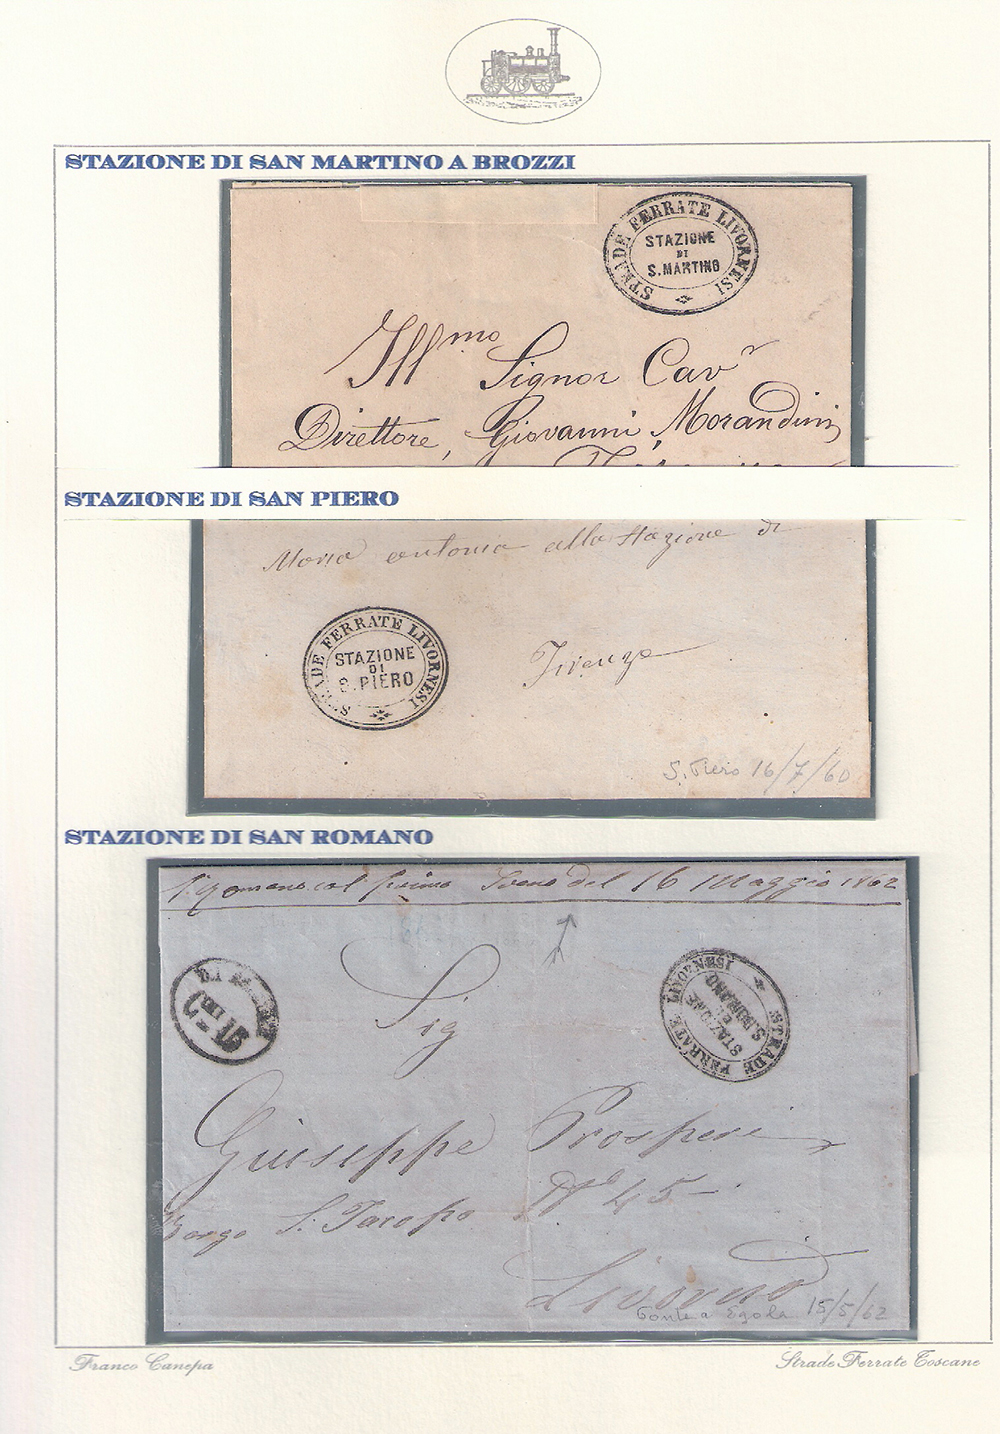 STAZIONE DI SAN MARTINO A BROZZI
STRADE FERRATE LIVORNESI
STAZIONE
DI
S. MARTINO
Ill.mo Signor Cav.r
Direttore, Giovanni Morandini
STAZIONE DI SAN PIERO
Maria antonia alla Stazione di
STRADE FERRATE LIVORNESI
STAZIONE
DI
S. PIERO
Firenze
S. Piero 16/7/60
STAZIONE DI SAN ROMANO
S. Romano col primo Treno del 16 Maggio 1862
STRADE FERRATE LIVORNESI
STAZIONE
DI
S. ROMANO
Cmi 15
Sig
Giuseppe Prosperi
Borgo S. Jacopo No 45
Livorno
Ponte a Egola 15/5/62
Franco Canepa
Strade Ferrate Toscane